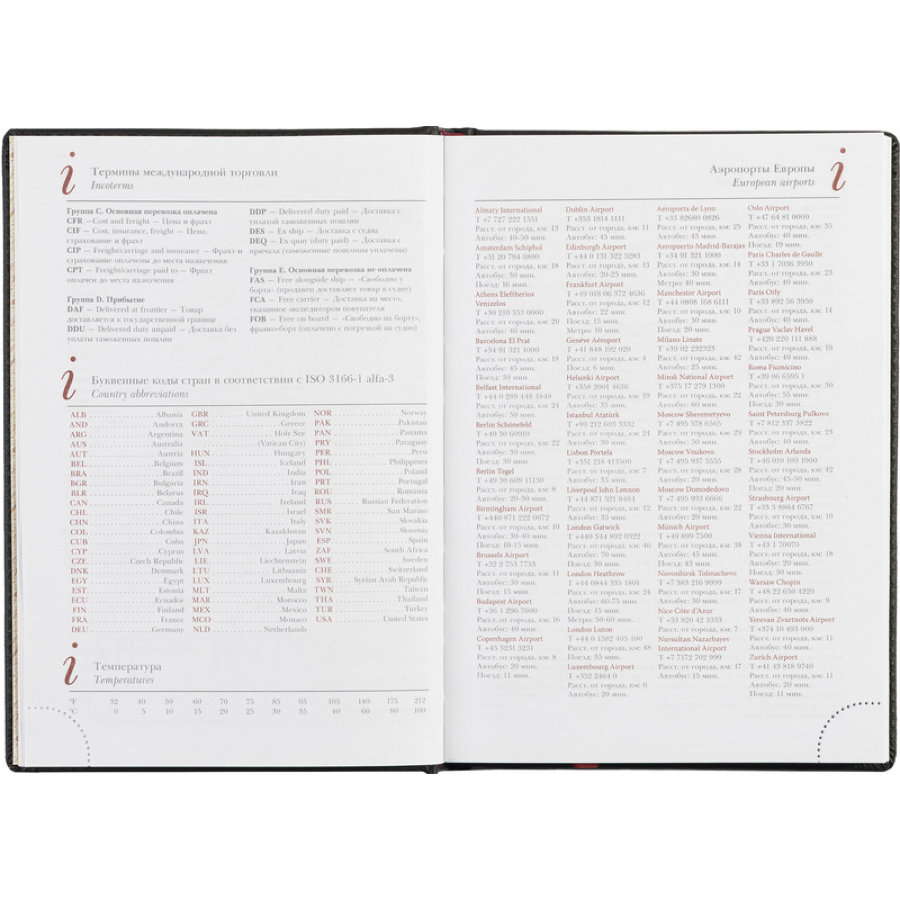 i
Термины международной торговли
Incoterms
Группа C. Основная перевозка оплачена
CFR —Cost and freight — Цена и фрахт
CIF — Cost, insurance, freight — Цена,
страхование и фрахт
CIP — Freight/carriage and insurance — Фрахт и
страхование оплачены до места назначения
CPT — Freight/carriage paid to — Фрахт
оплачен до места назначения
Группа D. Прибытие
DAF — Delivered at frontier — Товар
доставляется к государственной границе
DDU — Delivered duty unpaid — Доставка без
уплаты таможенных пошлин
DDP — Delivered duty paid — Доставка с
уплатой таможенных пошлин
DES — Ex ship — Доставка с судна
DEQ — Ex quay (duty paid) — Доставка с
причала (таможенные пошлины уплачены)
Группа E. Основная перевозка не оплачена
FAS — Free alongside ship — «Свободно у
борта» (продавец доставляет товар к судну)
FCA — Free carrier — Доставка на место,
указанное экспедитором покупателя
FOB — Free on board — «Свободно на борту»,
франко-борт (оплачено с погрузкой на судно)
i
Буквенные коды стран в соответствии с ISO 3166-1 alfa-3
Country abbreviations
ALB Albania
AND Andorra
ARG Argentina
AUS Australia
AUT Austria
BEL Belgium
BRA Brazil
BGR Bulgaria
BLR Belarus
CAN Canada
CHL Chile
CHN China
COL Colombia
CUB Cuba
CYP Cyprus
CZE Czech Republic
DNK Denmark
EGY Egypt
EST Estonia
ECU Ecuador
FIN Finland
FRA France
DEU Germany
GBR United Kingdom
GRC Greece
VAT Holy See
(Vatican City)
HUN Hungary
ISL Iceland
IND India
IRN Iran
IRQ Iraq
IRL Ireland
ISR Israel
ITA Italy
KAZ Kazakhstan
JPN Japan
LVA Latvia
LIE Liechtenstein
LTU Lithuania
LUX Luxembourg
MLT Malta
MAR Morocco
MEX Mexico
MCO Monaco
NLD Netherlands
NOR Norway
PAK Pakistan
PAN Panama
PRY Paraguay
PER Peru
PHL Philippines
POL Poland
PRT Portugal
ROU Romania
RUS Russian Federation
SMR San Marino
SVK Slovakia
SVN Slovenia
ESP Spain
ZAF South Africa
SWE Sweden
CHE Switzerland
SYR Syrian Arab Republic
TWN Taiwan
THA Thailand
TUR Turkey
USA United States
i
Температура
Temperatures
°F 32 40 50 60 70 75 85 95 105 140 175 212
°C 0 5 10 15 20 25 30 35 40 60 80 100
i
Аэропорты Европы
European airports
Almaty International
T +7 727 222 1351
Расст. от города, км: 13
Автобус: 40-50 мин.
Amsterdam Schiphol
T +31 20 794 0800
Расст. от города, км: 18
Автобус: 20-30 мин.
Поезд: 16 мин.
Athens Eleftherios
Venizelos
T +30 210 353 0000
Расст. от города, км: 20
Автобус: 40 мин.
Barcelona El Prat
T +34 91 321 1000
Расст. от города, км: 18
Автобус: 45 мин.
Поезд: 30 мин.
Belfast International
T +44 0 289 448 4848
Расст. от города, км: 24
Автобус: 50 мин.
Berlin Schönefeld
T +49 30 60910
Расст. от города, км: 22
Автобус: 30 мин.
Поезд: 30 мин.
Berlin Tegel
T +49 30 609 11150
Расст. от города, км: 8
Автобус: 20-30 мин.
Birmingham Airport
T +440 871 222 0072
Расст. от города, км: 10
Автобус: 30-40 мин.
Поезд: 10-15 мин.
Brussels Airport
T +32 2 753 7753
Расст. от города, км: 11
Автобус: 30 мин.
Поезд: 15 мин.
Budapest Airport
T +36 1 296 7000
Расст. от города, км: 16
Автобус: 40 мин.
Copenhagen Airport
T +45 3231 3231
Расст. от города, км: 8
Автобус: 20 мин.
Поезд: 11 мин.
Dublin Airport
T +353 1814 1111
Расст. от города, км: 11
Автобус: 45 мин.
Edinburgh Airport
T +44 0 131 322 5283
Расст. от города, км: 13
Автобус: 25 мин.
Frankfurt Airport
T +49 018 06 372 4636
Расст. от города, км: 12
Автобус: 22 мин.
Поезд: 15 мин.
Метро: 10 мин.
Genève Aéroport
T +41 848 192 020
Расст. от города, км: 4
Поезд: 6 мин.
Helsinki Airport
T +358 2001 4636
Расст. от города, км: 19
Автобус: 35 мин.
Istanbul Atatürk
T +90 212 603 3332
Расст. от города, км: 24
Автобус: 30 мин.
Lisbon Portela
T +351 218 413500
Расст. от города, км: 7
Автобус: 35 мин.
Liverpool John Lennon
T +44 871 521 8484
Расст. от города, км: 12
Автобус: 35 мин.
London Gatwick
T +440 344 892 0322
Расст. от города, км: 46
Поезд: 30 мин.
London Heathrow
T +44 0844 335 1801
Расст. от города, км: 24
Поезд: 15 мин.
Метро: 50-60 мин.
London Luton
T +44 0 1582 405 100
Расст. от города, км: 48
Поезд: 35 мин.
Luxembourg Airport
T +352 2464 0
Расст. от города, км: 6
Автобус: 20 мин.
Aéroports de Lyon
T +33 82680 0826
Расст. от города, км: 25
Автобус: 45 мин.
Aeropuerto Madrid-Barajas
T +34 91 321 1000
Расст. от города, км: 14
Автобус: 20-25 мин.
Метро: 40 мин.
Manchester Airport
T +44 0808 168 6111
Расст. от города, км: 10
Автобус: 30 мин.
Поезд: 20 мин.
Milano Linate
T +39 02 232323
Расст. от города, км: 42
Автобус: 25 мин.
Minsk National Airport
T +375 17 279 1300
Расст. от города, км: 42
Автобус: 50 мин.
Moscow Sheremetyevo
T +7 495 578 6565
Расст. от города, км: 29
Автобус: 50 мин.
Moscow Vnukovo
T +7 495 937 5555
Расст. от города, км: 28
Автобус: 40 мин.
Moscow Domodedovo
T +7 495 933 6666
Расст. от города, км: 22
Автобус: 40 мин.
Münich Airport
T +49 899 7500
Расст. от города, км: 38
Автобус: 45 мин.
Поезд: 43 мин.
Novosibirsk Tolmachevo
T +7 383 216 9999
Расст. от города, км: 17
Автобус: 30 мин.
Nice Côte d'Azur
T +33 820 42 3333
Расст. от города, км: 7
Nursultan Nazarbayev
International Airport
T +7 7172 702 999
Расст. от города, км: 17
Автобус: 15 мин.
Oslo Airport
T +47 64 81 0000
Расст. от города, км: 35
Автобус: 40 мин.
Поезд: 19 мин.
Paris Charles de Gaulle
T +33 1 7036 3950
Расст. от города, км: 23
Автобус: 40 мин.
Paris Orly
T +33 892 56 3950
Расст. от города, км: 14
Автобус: 40 мин.
Prague Vaclav Havel
T +420 220 111 888
Расст. от города, км: 19
Автобус: 40 мин.
Roma Fiumicino
T +39 06 6595 1
Расст. от города, км: 30
Поезд: 30 мин.
Saint Petersburg Pulkovo
T +7 812 337 3822
Расст. от города, км: 23
Автобус: 40 мин.
Stockholm Arlanda
T +46 010 109 1000
Расст. от города, км: 42
Автобус: 45-50 мин.
Поезд: 20 мин.
Strasbourg Airport
T +33 3 8864 6767
Расст. от города, км: 10
Автобус: 30 мин.
Vienna International
T +43 1 70070
Расст. от города, км: 18
Автобус: 20 мин.
Поезд: 30 мин.
Warsaw Chopin
T +48 22 650 4220
Расст. от города, км: 9
Автобус: 40 мин.
Yerevan Zvartnots Airport
T +374 10 493 000
Расст. от города, км: 11
Автобус: 40 мин.
Zurich Airport
T +41 43 818 9740
Расст. от города, км: 11
Автобус: 20 мин.
Поезд: 11 мин.